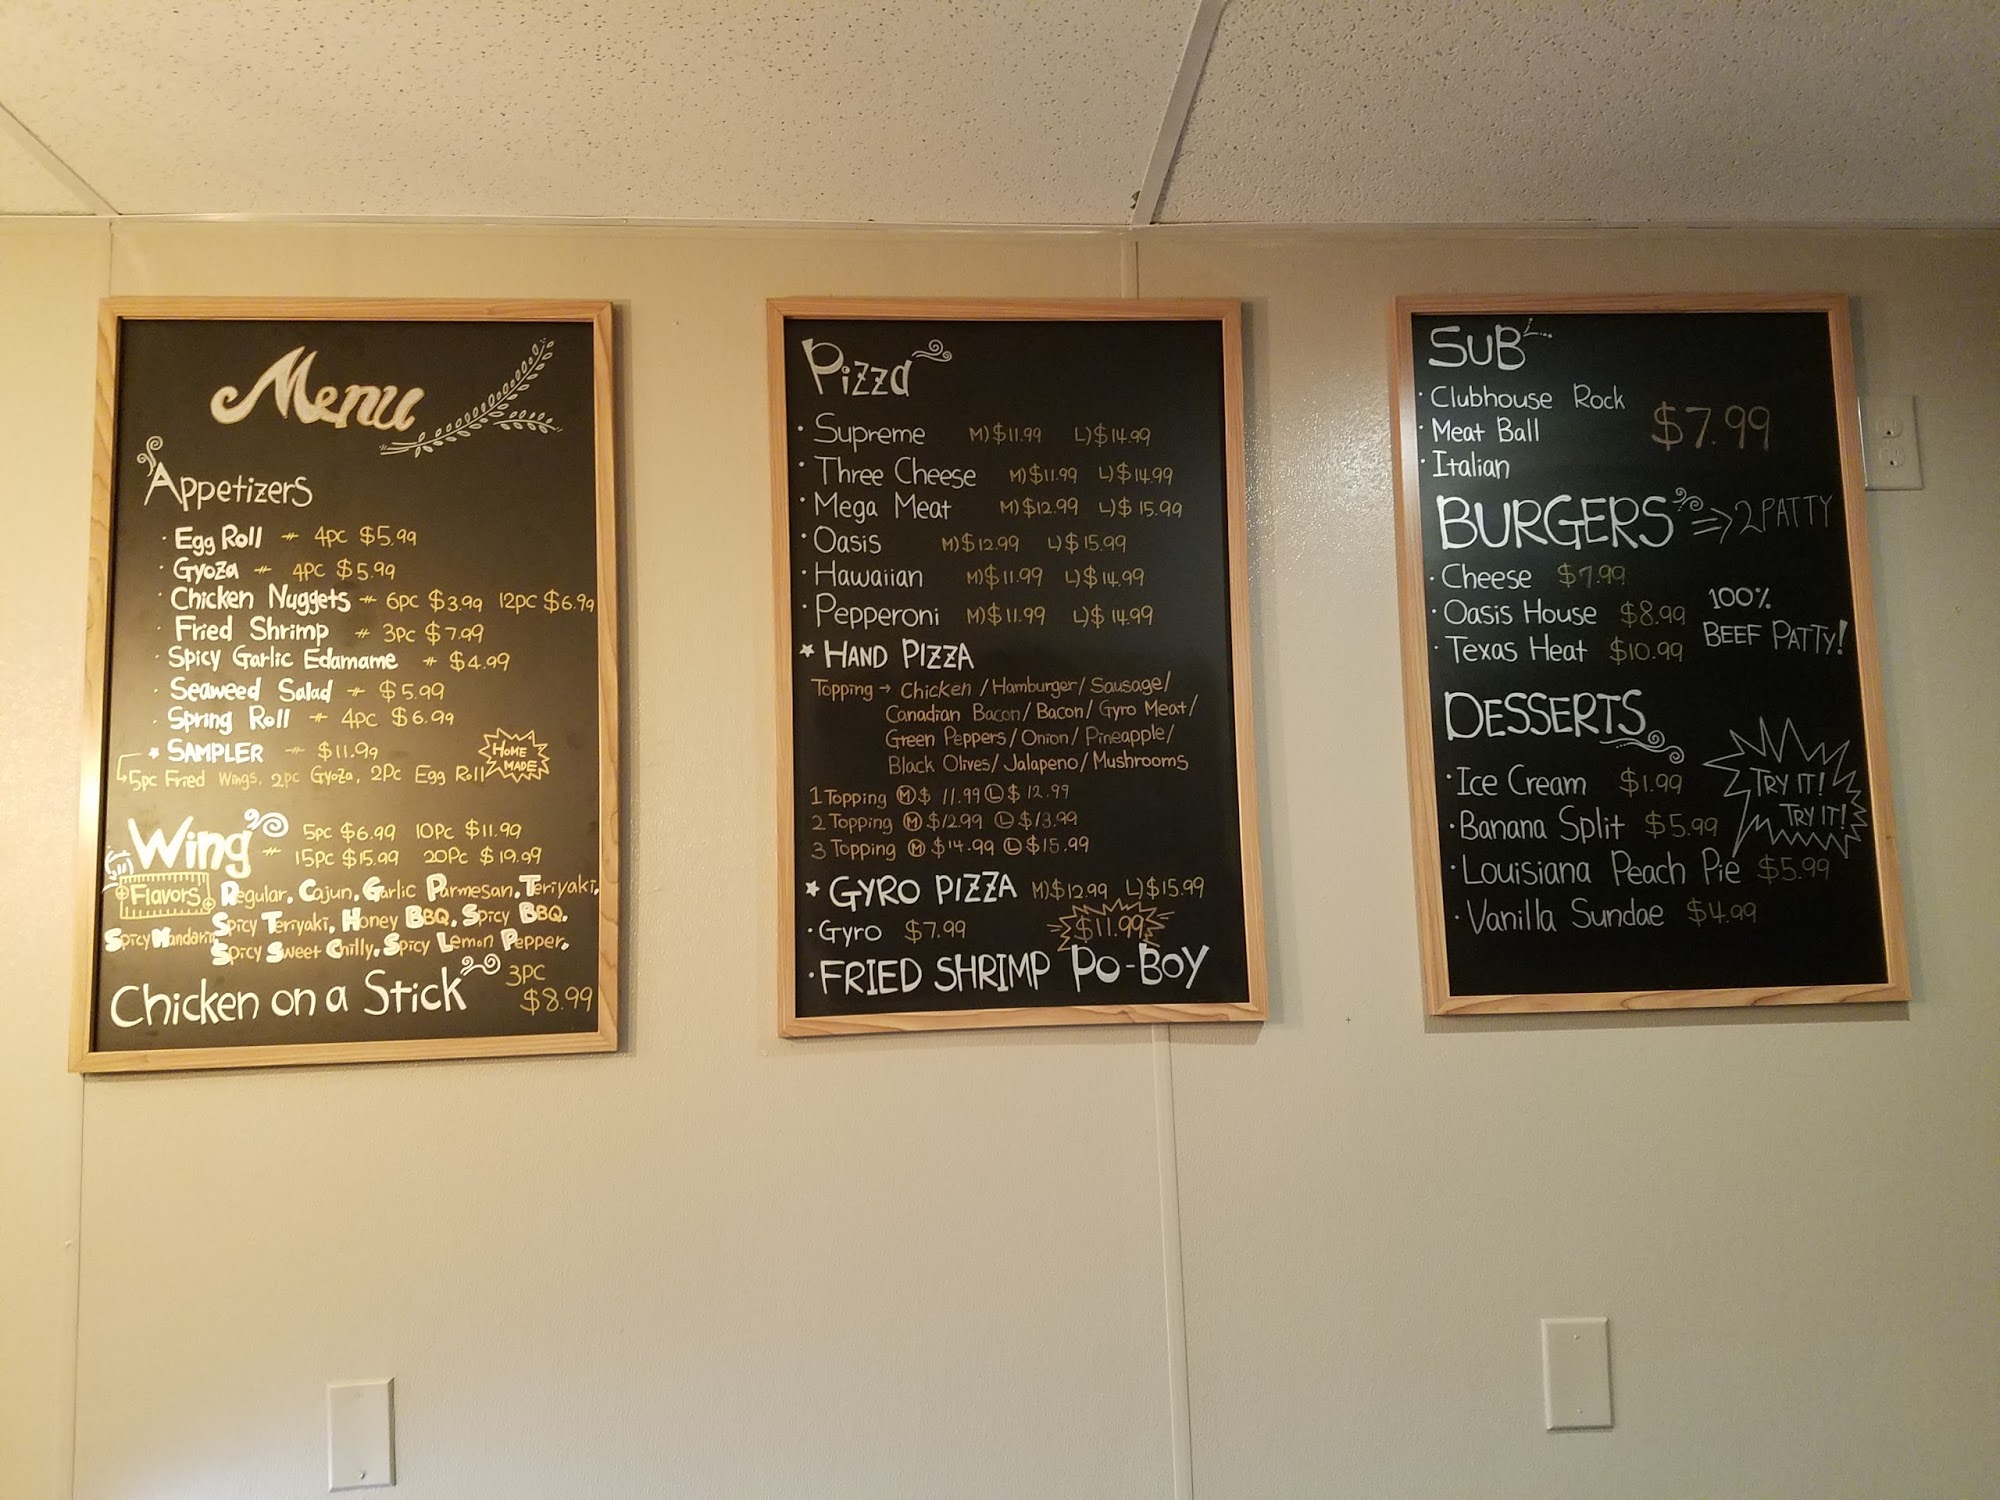 Menu
Appetizers
· Egg Roll 4pc $5.99
· Gyoza 4pc $5.99
· Chicken Nuggets 6pc $3.99 12pc $6.99
· Fried Shrimp 3pc $7.99
· Spicy Garlic Edamame $4.99
· Seaweed Salad $5.99
· Spring Roll 4pc $6.99
★ SAMPLER $11.99
5pc Fried Wings, 2pc Gyoza, 2Pc Egg Roll
HOME MADE
Wing 5pc $6.99 10Pc $11.99
15pc $15.99 20Pc $19.99
Flavors Regular, Cajun, Garlic Parmesan, Teriyaki,
Spicy Teriyaki, Honey BBQ, Spicy BBQ,
Spicy Mandarin Spicy Sweet Chilly, Spicy Lemon Pepper,
Chicken on a Stick 3PC
$8.99
Pizza
· Supreme M)$11.99 L)$14.99
· Three Cheese M)$11.99 L)$14.99
· Mega Meat M)$12.99 L)$15.99
· Oasis M)$12.99 L)$15.99
· Hawaiian M)$11.99 L)$14.99
· Pepperoni M)$11.99 L)$14.99
★ HAND PIZZA
Topping → Chicken / Hamburger / Sausage /
Canadian Bacon / Bacon / Gyro Meat /
Green Peppers / Onion / Pineapple /
Black Olives / Jalapeno / Mushrooms
1 Topping Ⓜ $11.99 Ⓛ $12.99
2 Topping Ⓜ $12.99 Ⓛ $13.99
3 Topping Ⓜ $14.99 Ⓛ $15.99
★ GYRO PIZZA M)$12.99 L)$15.99
· Gyro $7.99 $11.99
· FRIED SHRIMP PO-BOY
SUB
· Clubhouse Rock
· Meat Ball $7.99
· Italian
BURGERS ⇒ 2PATTY
· Cheese $7.99
· Oasis House $8.99
· Texas Heat $10.99
100%
BEEF PATTY!
DESSERTS
· Ice Cream $1.99
· Banana Split $5.99
· Louisiana Peach Pie $5.99
· Vanilla Sundae $4.99
TRY IT!
TRY IT!